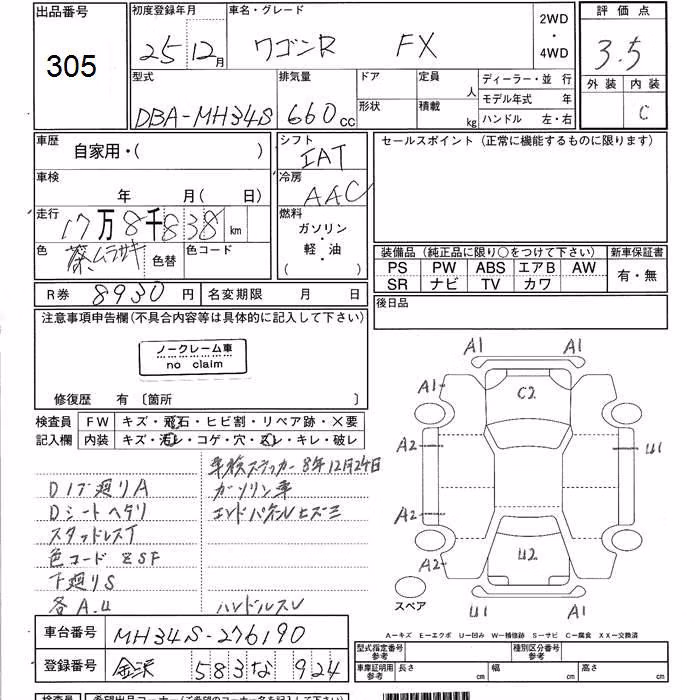 出品番号
305
初度登録年月
25 12月
車名・グレード
ワゴンR FX
2WD
・
4WD
評価点
3.5
外装 内装
C
型式
DBA-MH34S
排気量
660cc
ドア
形状
定員
人
積載
kg
ディーラー・並行
モデル年式 年
ハンドル 左・右
車歴
自家用・( )
シフト
IAT
セールスポイント (正常に機能するものに限ります)
車検
年 月( 日)
冷房
AAC
走行
17万8千838km
燃料
ガソリン
・
軽・油
( )
色
ムラサキ
色替
色コード
装備品 (純正品に限り○をつけて下さい)
新車保証書
PS PW ABS エアB AW
有・無
SR ナビ TV カワ
R券 8930円
名変期限 月 日
後日品
注意事項申告欄(不具合内容等は具体的に記入して下さい)
ノークレーム車
no claim
修復歴 有 〔箇所 〕
検査員
記入欄
FW キズ・飛石・ヒビ割・リペア跡・×要
内装 キズ・汚レ・コゲ・穴・スレ・キレ・破レ
車検ステッカー8年12月24日
D1プ廻りA ガソリン車
Dシートヘタリ エンドパネルヒズミ
スタッドレスT
色コード ZSF
下廻りS
各A.U ハンドルスレ
A1 A1
A1 C2
A2 U1
A2
A2 U2
U1 A1
スペア
A－キズ E－エクボ U－凹み W－補修跡 S－サビ C－腐食 XX－交換済
車台番号 MH34S-276190
登録番号 金沢 583 な 924
型式指定番号
参考
種別区分番号
参考
車庫証明用
参考
長さ cm 幅 cm 高さ cm